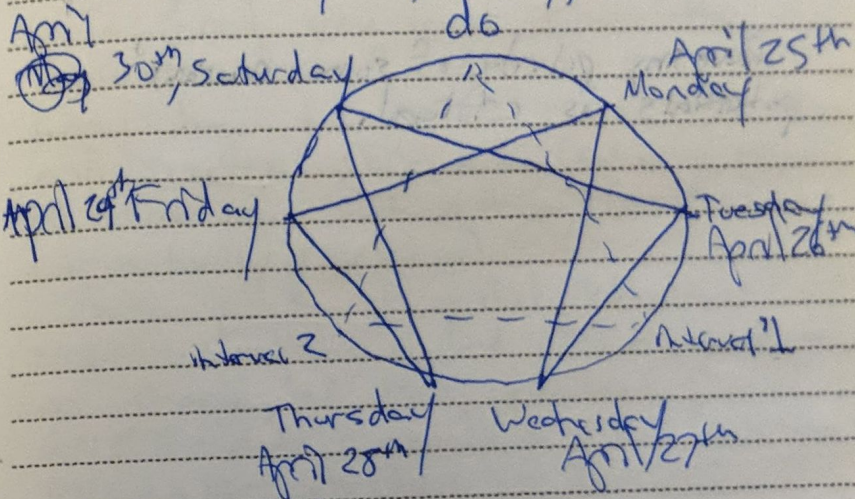 do
April
30th, Saturday
April 25th
Monday
April 29th Friday
Tuesday
April 26th
interval 2
interval 1
Thursday
April 28th
Wednesday
April 27th